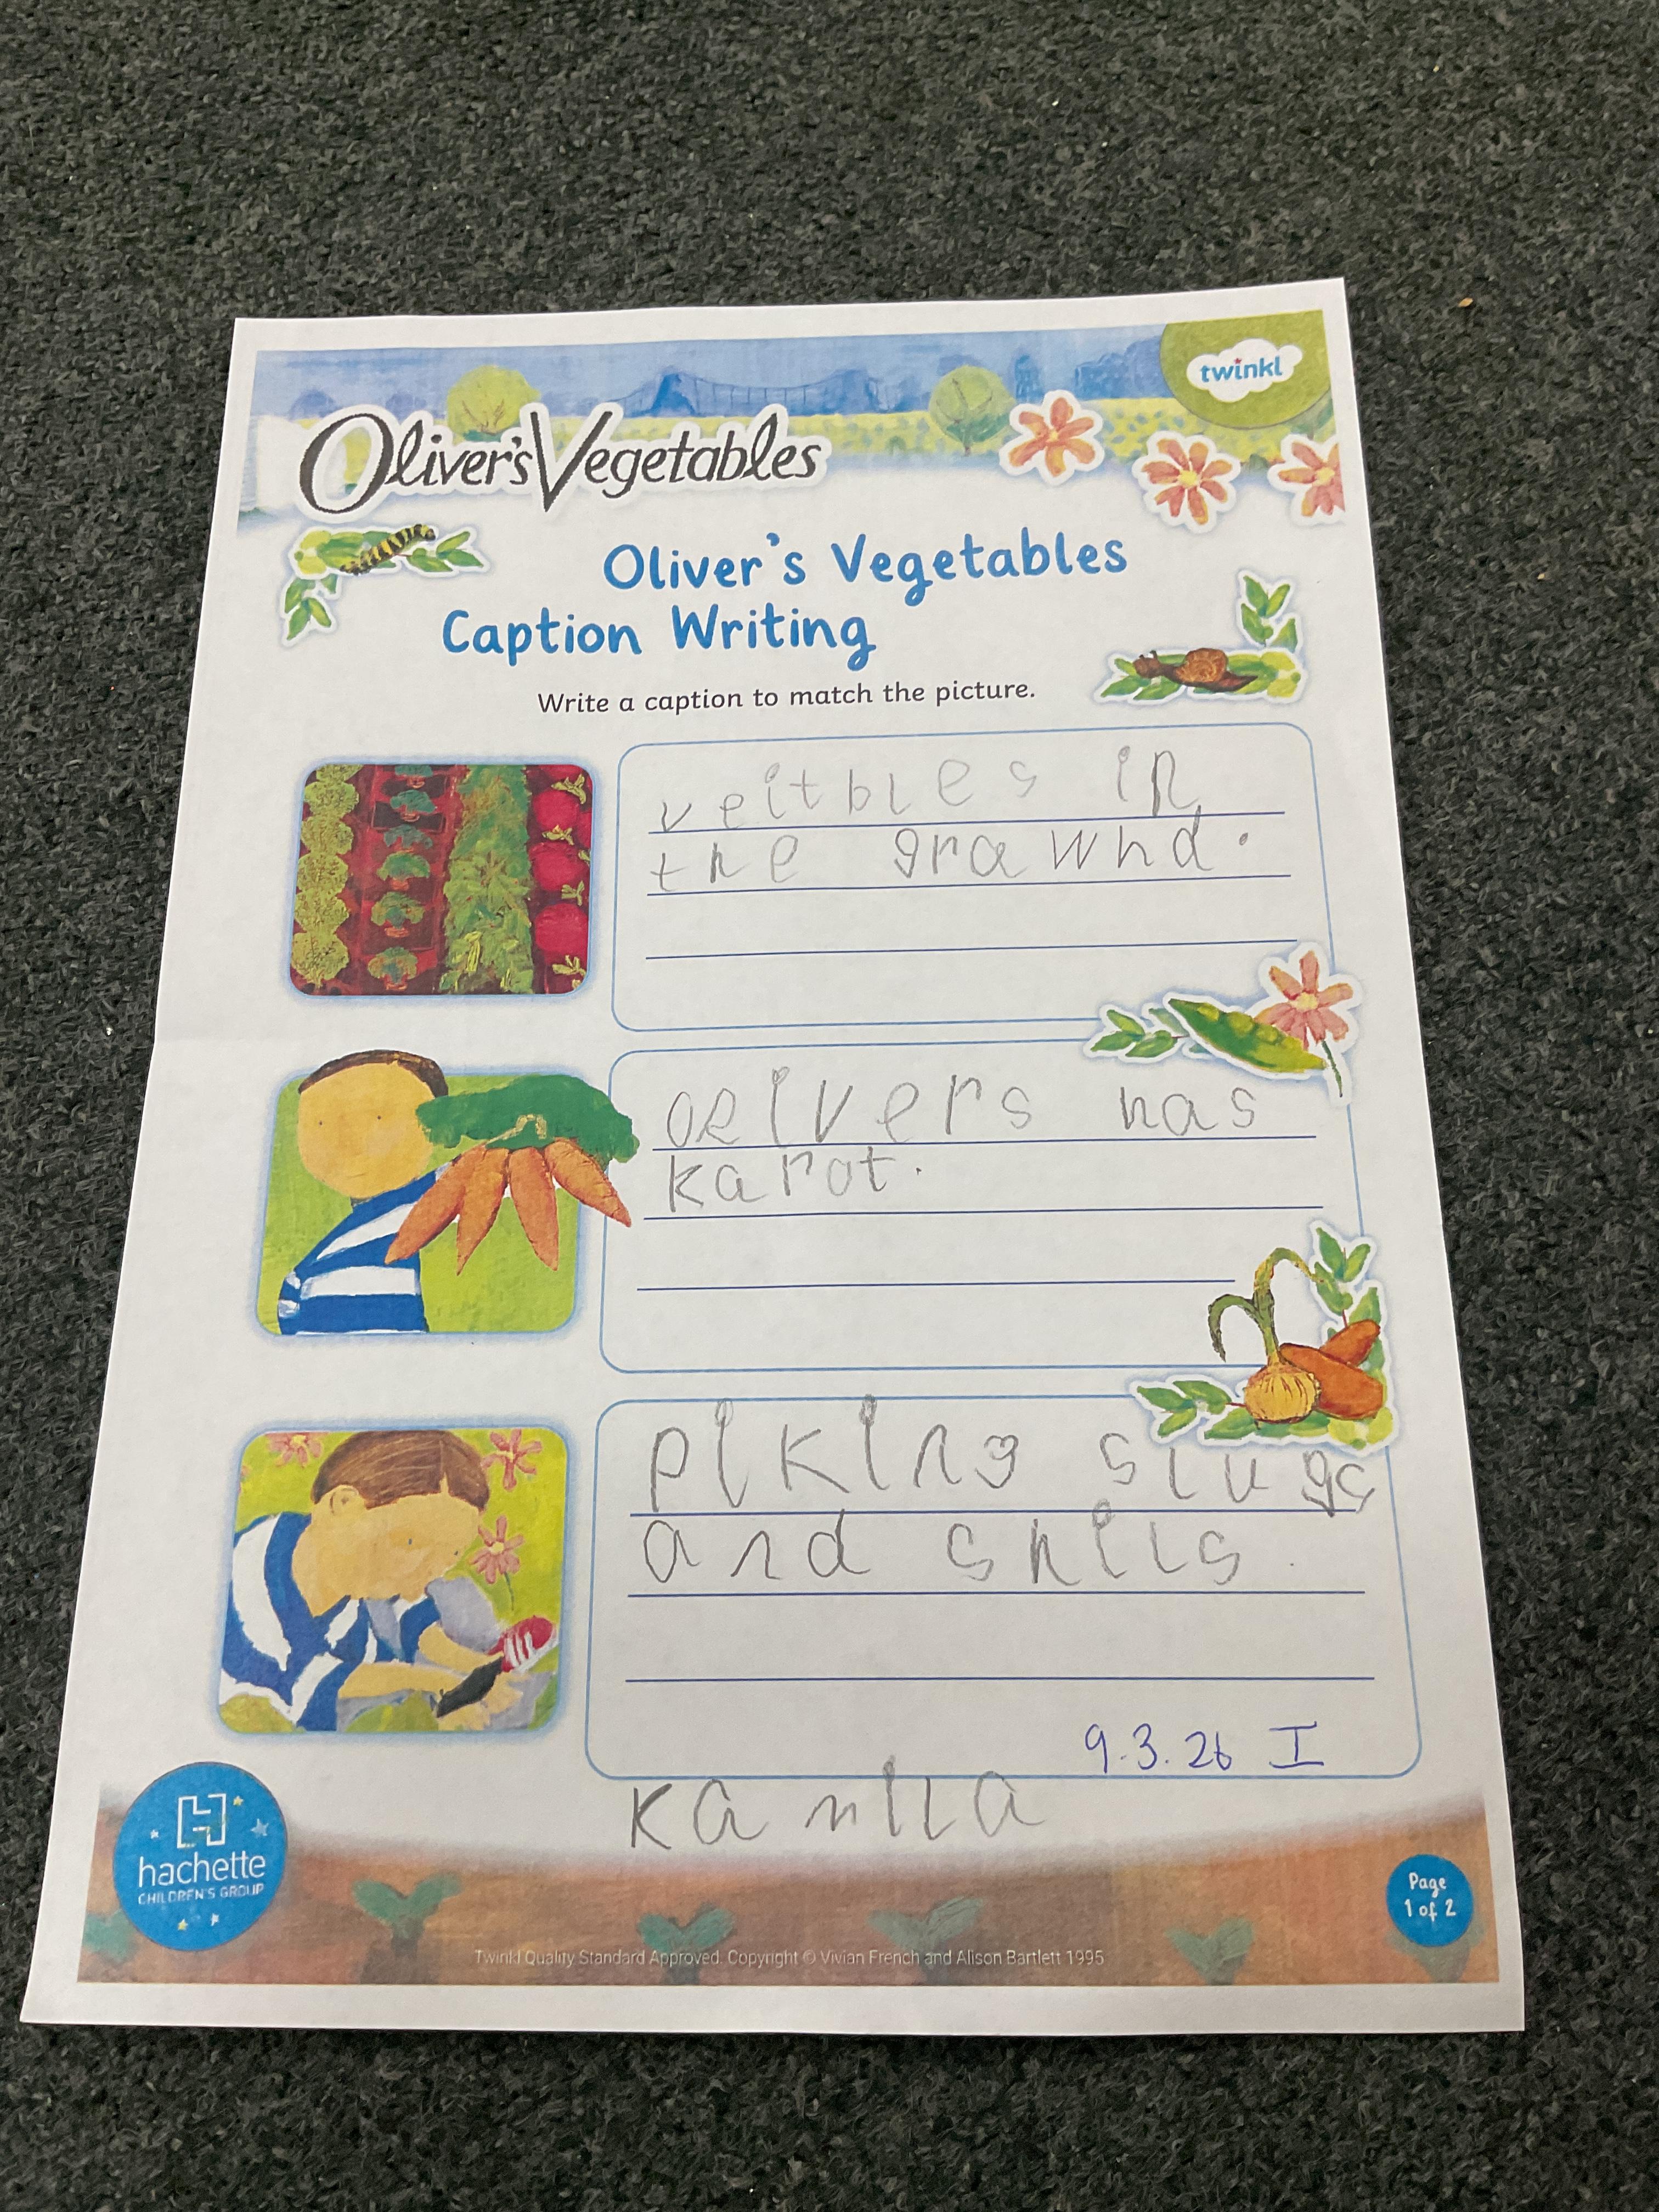 twinkl
Oliver's Vegetables
Oliver's Vegetables
Caption Writing
Write a caption to match the picture.
veitbles in
the grawnd.
oelivers has
karot.
piking slugs
and snils.
9.3.26 I
kamila
hachette
CHILDREN'S GROUP
Page
1 of 2
Twinkl Quality Standard Approved. Copyright © Vivian French and Alison Bartlett 1995